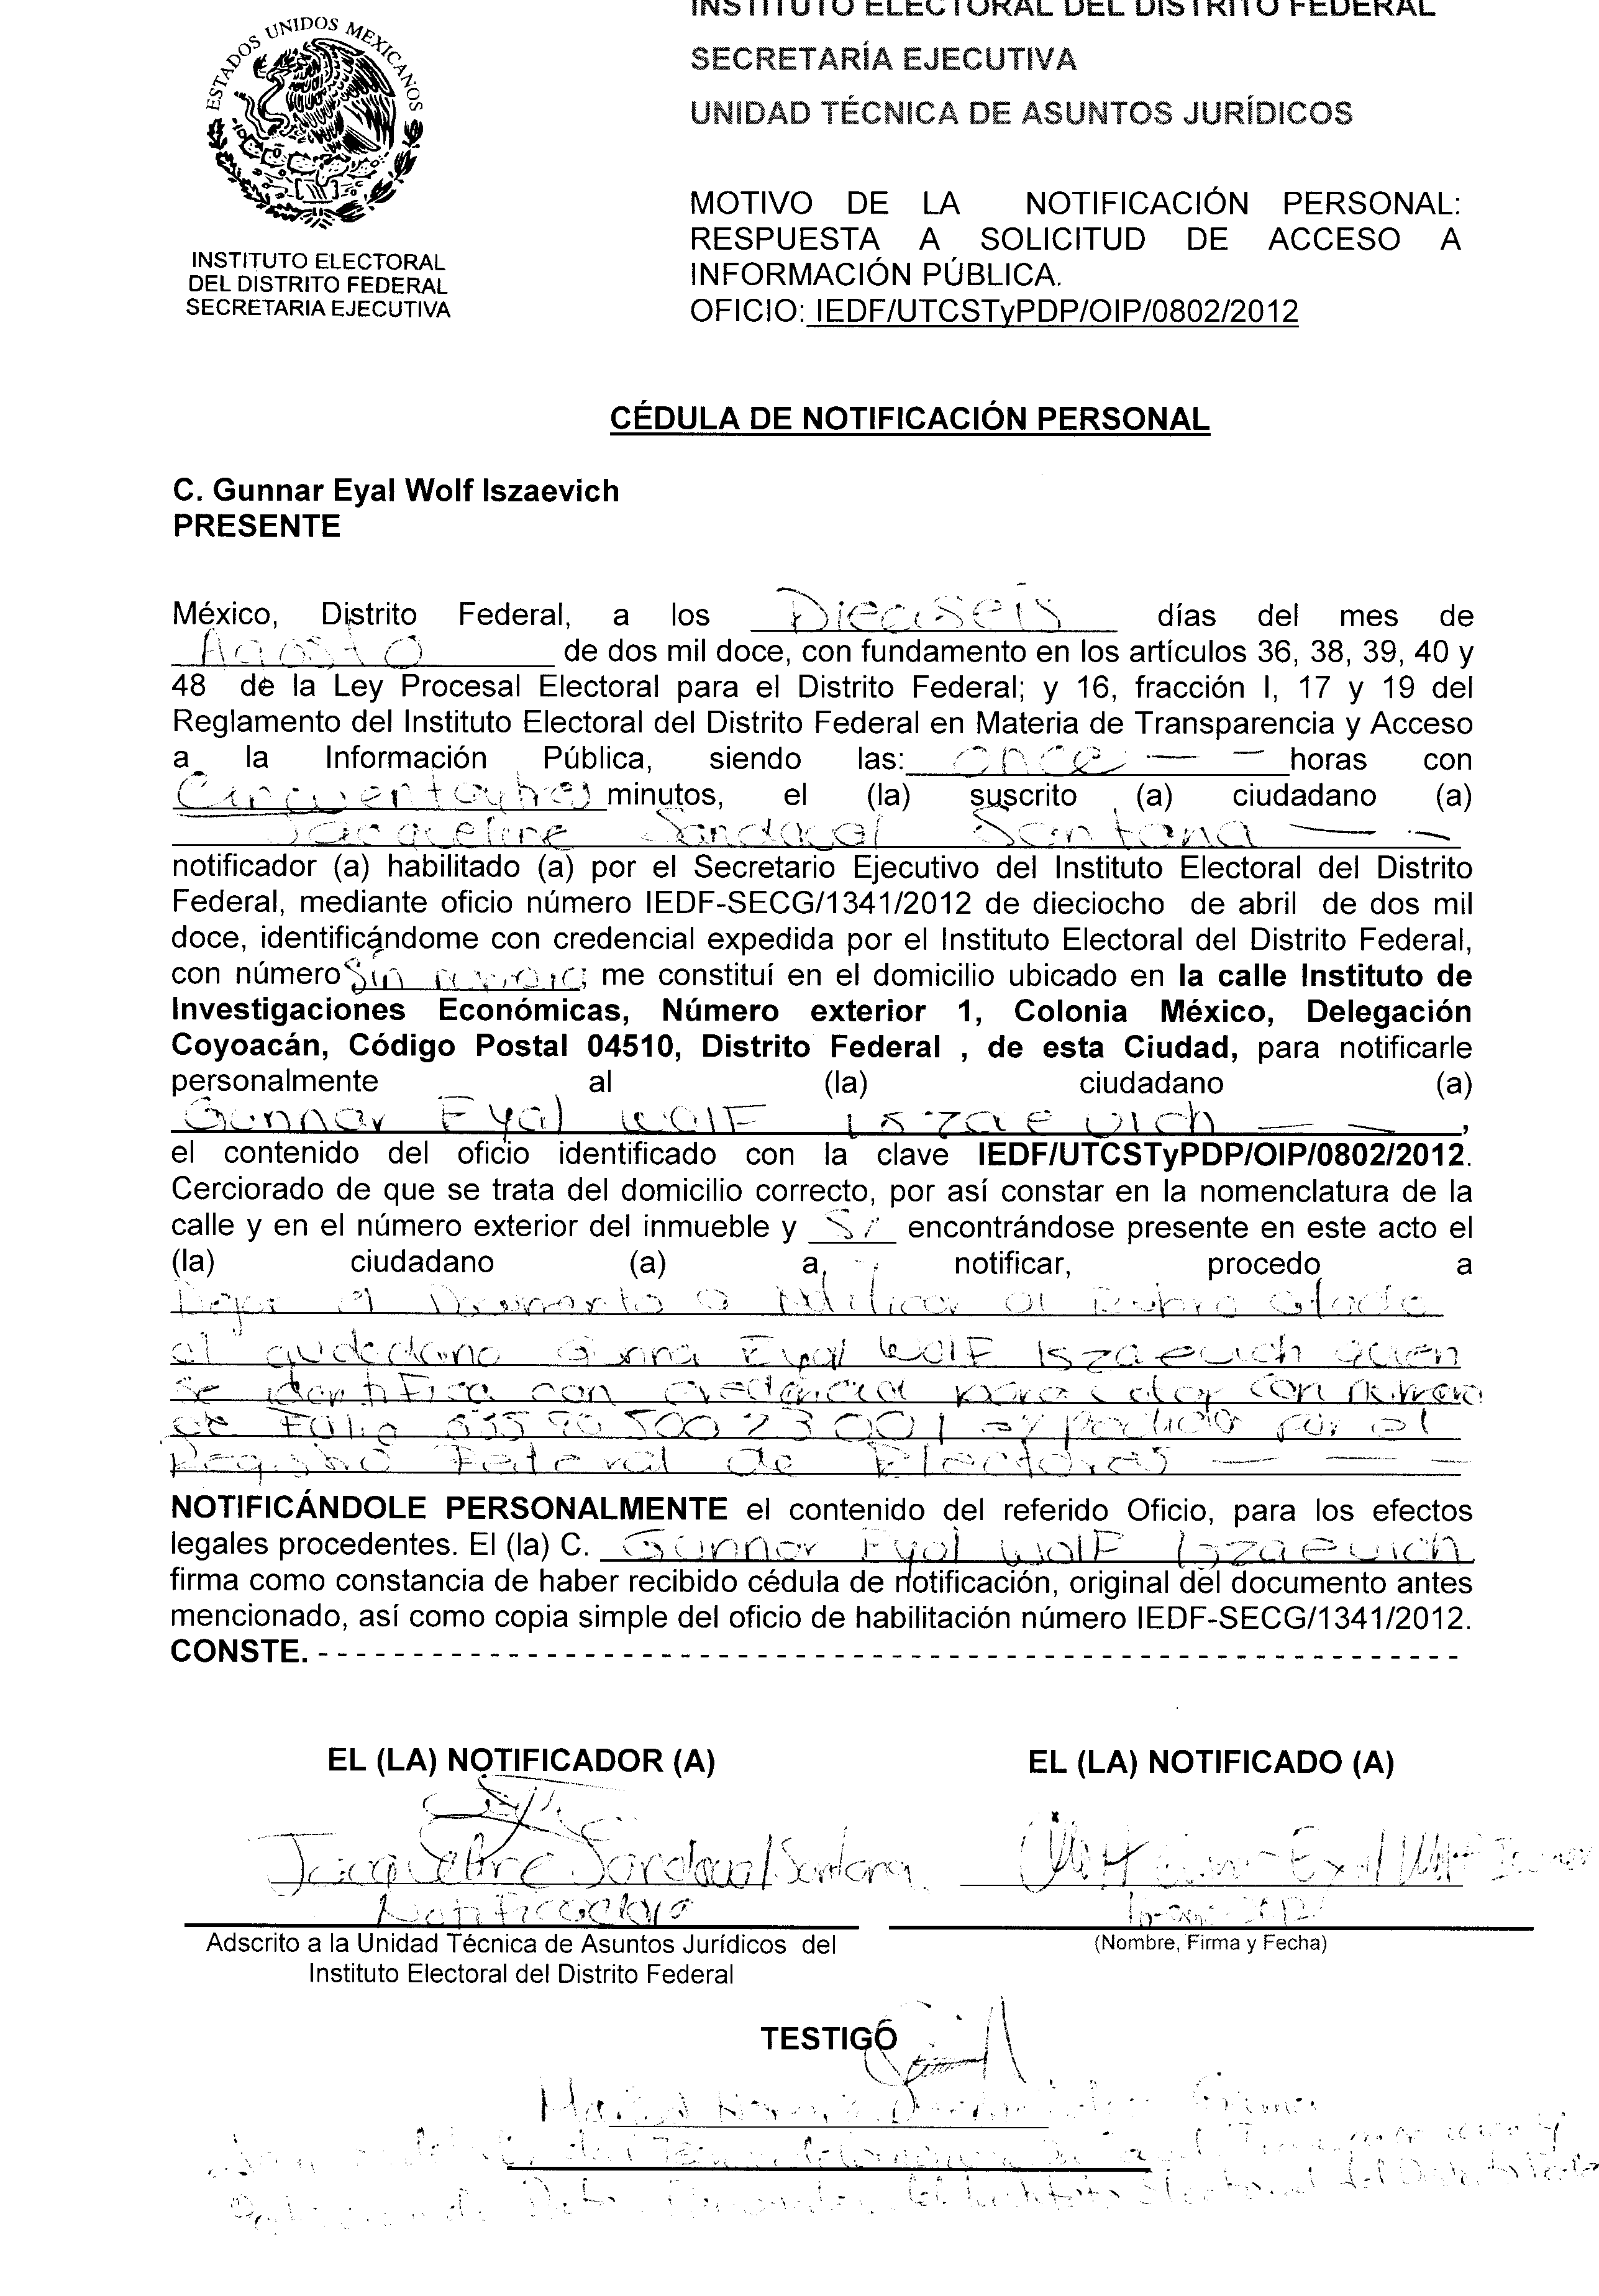 INSTITUTO ELECTORAL DEL DISTRITO FEDERAL
SECRETARÍA EJECUTIVA
UNIDAD TÉCNICA DE ASUNTOS JURÍDICOS
ESTADOS UNIDOS MEXICANOS
INSTITUTO ELECTORAL
DEL DISTRITO FEDERAL
SECRETARIA EJECUTIVA
MOTIVO DE LA NOTIFICACIÓN PERSONAL:
RESPUESTA A SOLICITUD DE ACCESO A
INFORMACIÓN PÚBLICA.
OFICIO: IEDF/UTCSTyPDP/OIP/0802/2012
CÉDULA DE NOTIFICACIÓN PERSONAL
C. Gunnar Eyal Wolf Iszaevich
PRESENTE
México, Distrito Federal, a los Dieciseis días del mes de
Agosto de dos mil doce, con fundamento en los artículos 36, 38, 39, 40 y
48 de la Ley Procesal Electoral para el Distrito Federal; y 16, fracción I, 17 y 19 del
Reglamento del Instituto Electoral del Distrito Federal en Materia de Transparencia y Acceso
a la Información Pública, siendo las: once — — horas con
Cincuentaytres minutos, el (la) suscrito (a) ciudadano (a)
Jacqueline Sandoval Santana — -
notificador (a) habilitado (a) por el Secretario Ejecutivo del Instituto Electoral del Distrito
Federal, mediante oficio número IEDF-SECG/1341/2012 de dieciocho de abril de dos mil
doce, identificándome con credencial expedida por el Instituto Electoral del Distrito Federal,
con número Sin me constituí en el domicilio ubicado en la calle Instituto de
Investigaciones Económicas, Número exterior 1, Colonia México, Delegación
Coyoacán, Código Postal 04510, Distrito Federal , de esta Ciudad, para notificarle
personalmente al (la) ciudadano (a)
Gunnar Eyal Wolf Iszaevich — -,
el contenido del oficio identificado con la clave IEDF/UTCSTyPDP/OIP/0802/2012.
Cerciorado de que se trata del domicilio correcto, por así constar en la nomenclatura de la
calle y en el número exterior del inmueble y Si encontrándose presente en este acto el
(la) ciudadano (a) a notificar, procedo a
Dejar el Documento a Notificar al Rubro citado
al ciudadano Gunnar Eyal Wolf Iszaevich quien
se identifica con credencial para votar con número
de Folio expedida por el
Registro Federal de Electores — — -
NOTIFICÁNDOLE PERSONALMENTE el contenido del referido Oficio, para los efectos
legales procedentes. El (la) C. Gunnar Eyal Wolf Iszaevich
firma como constancia de haber recibido cédula de notificación, original del documento antes
mencionado, así como copia simple del oficio de habilitación número IEDF-SECG/1341/2012.
CONSTE. - - - - - - - - - - - - - - - - - - - - - - - - - - - - - - - - - - - - - - - - - - - - - - - - - - - - - - - - - - -
EL (LA) NOTIFICADOR (A)
EL (LA) NOTIFICADO (A)
Jacqueline Sandoval Santana
Notificadora
Adscrito a la Unidad Técnica de Asuntos Jurídicos del
Instituto Electoral del Distrito Federal
Eyal Wolf
(Nombre, Firma y Fecha)
TESTIGO
del Instituto Electoral del Distrito